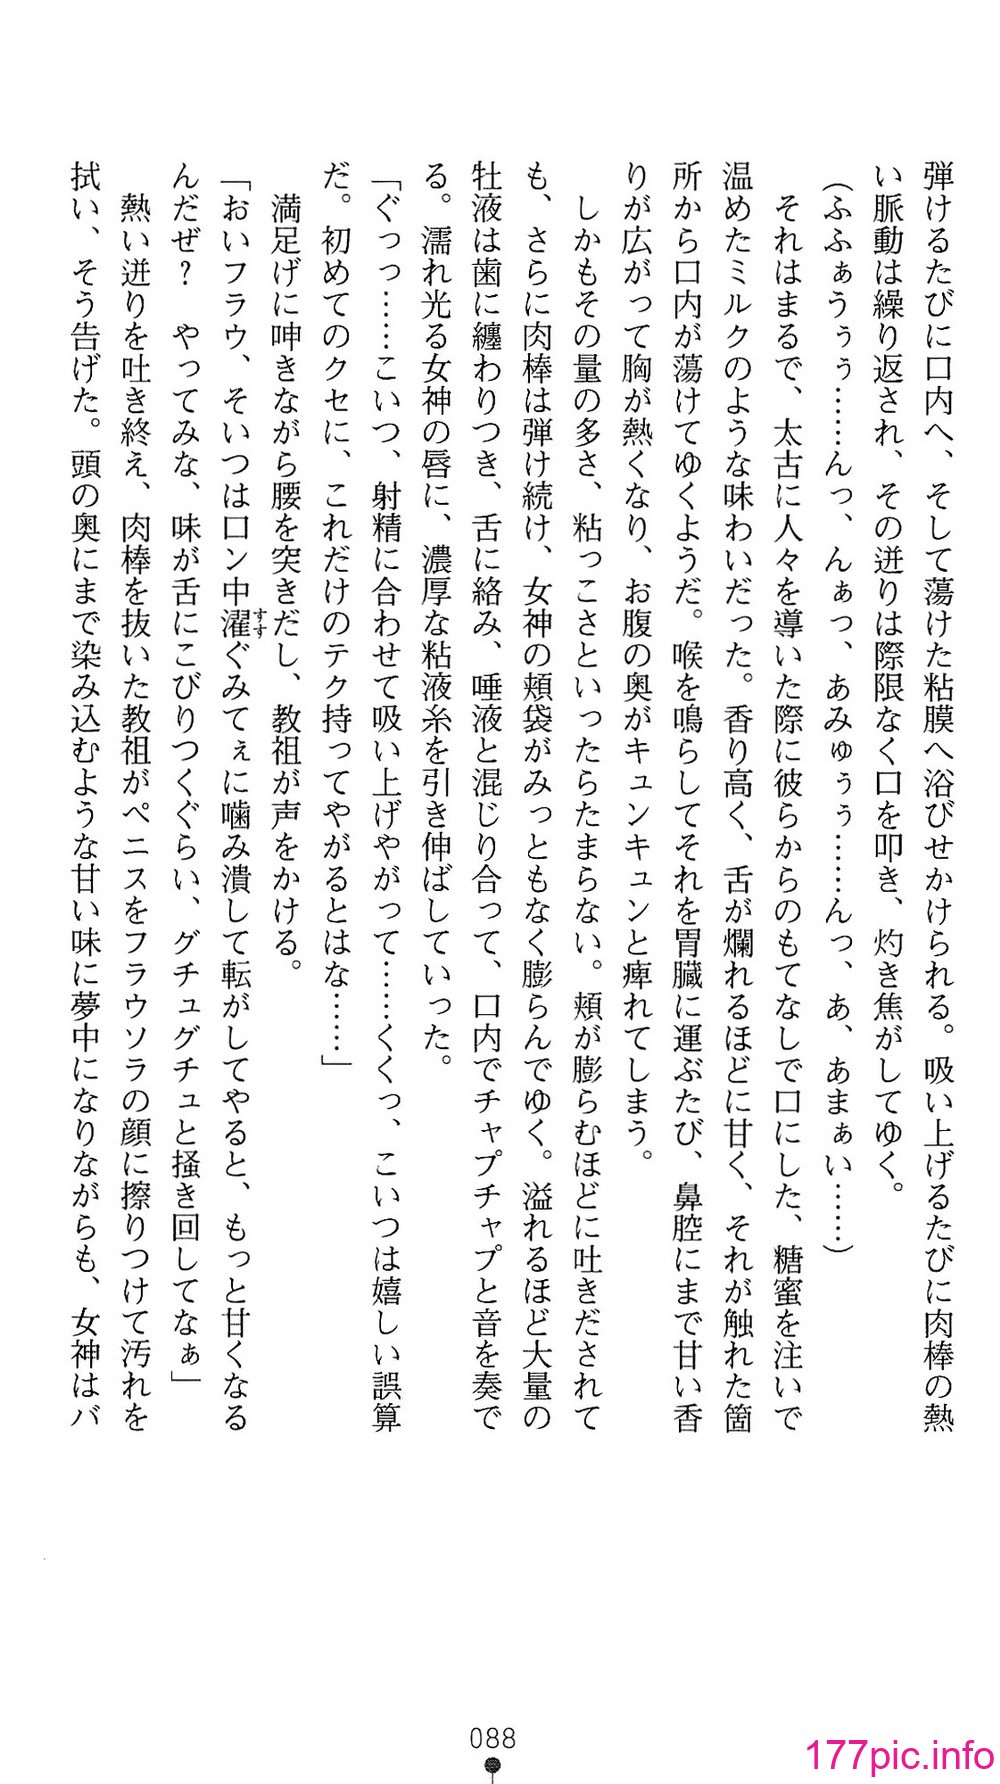 弾けるたびに口内へ、そして蕩けた粘膜へ浴びせかけられる。吸い上げるたびに肉棒の熱
い脈動は繰り返され、その迸りは際限なく口を叩き、灼き焦がしてゆく。
（ふふぁうぅぅ……んっ、んぁっ、あみゅぅぅ……んっ、あ、あまぁい……）
それはまるで、太古に人々を導いた際に彼らからのもてなしで口にした、糖蜜を注いで
温めたミルクのような味わいだった。香り高く、舌が爛れるほどに甘く、それが触れた箇
所から口内が蕩けてゆくようだ。喉を鳴らしてそれを胃臓に運ぶたび、鼻腔にまで甘い香
りが広がって胸が熱くなり、お腹の奥がキュンキュンと痺れてしまう。
しかもその量の多さ、粘っこさといったらたまらない。頬が膨らむほどに吐きだされて
も、さらに肉棒は弾け続け、女神の頬袋がみっともなく膨らんでゆく。溢れるほど大量の
牡液は歯に纏わりつき、舌に絡み、唾液と混じり合って、口内でチャプチャプと音を奏で
る。濡れ光る女神の唇に、濃厚な粘液糸を引き伸ばしていった。
「ぐっっ……こいつ、射精に合わせて吸い上げやがって……くくっ、こいつは嬉しい誤算
だ。初めてのクセに、これだけのテク持ってやがるとはな……」
満足げに呻きながら腰を突きだし、教祖が声をかける。
「おいフラウ、そいつは口ン中濯ぐみてぇに噛み潰して転がしてやると、もっと甘くなる
すす
んだぜ？　やってみな、味が舌にこびりつくぐらい、グチュグチュと掻き回してなぁ」
熱い迸りを吐き終え、肉棒を抜いた教祖がペニスをフラウソラの顔に擦りつけて汚れを
拭い、そう告げた。頭の奥にまで染み込むような甘い味に夢中になりながらも、女神はバ
088
177pic.info